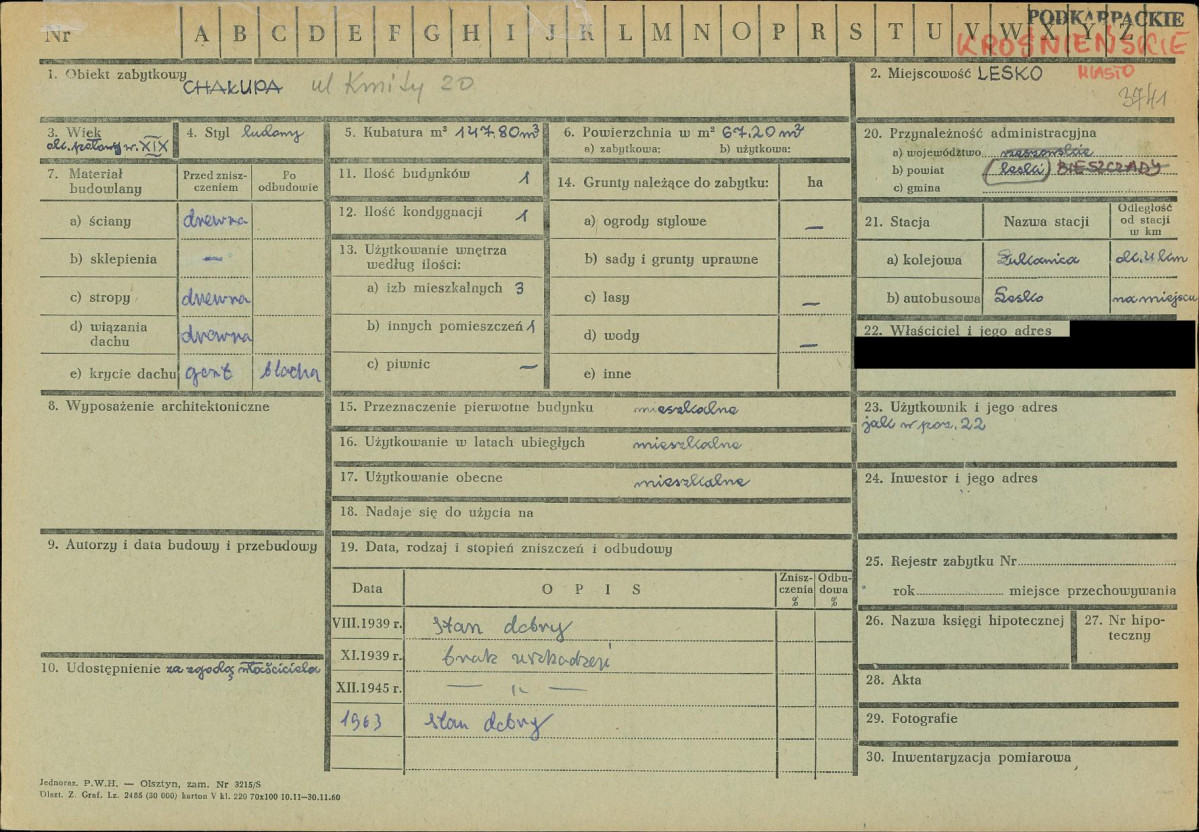 Nr A B C D E F G H I J K L M N O P R S T U V W X Y Z
PODKARPACKIE
KROŚNIEŃSKIE
1. Obiekt zabytkowy CHAŁUPA ul Kmity 20
2. Miejscowość LESKO MIASTO
3741
3. Wiek ok. połowy w. XIX
4. Styl ludowy
5. Kubatura m³ 147.80 m³
6. Powierzchnia w m² 67.20 m²
a) zabytkowa: b) użytkowa:
7. Materiał budowlany
Przed zniszczeniem
Po odbudowie
a) ściany drewno
b) sklepienia —
c) stropy drewno
d) wiązania dachu drewno
e) krycie dachu gont blacha
8. Wyposażenie architektoniczne
9. Autorzy i data budowy i przebudowy
10. Udostępnienie za zgodą właściciela
11. Ilość budynków 1
12. Ilość kondygnacji 1
13. Użytkowanie wnętrza
według ilości:
a) izb mieszkalnych 3
b) innych pomieszczeń 1
c) piwnic —
14. Grunty należące do zabytku: ha
a) ogrody stylowe —
b) sady i grunty uprawne
c) lasy —
d) wody —
e) inne
15. Przeznaczenie pierwotne budynku mieszkalne
16. Użytkowanie w latach ubiegłych mieszkalne
17. Użytkowanie obecne mieszkalne
18. Nadaje się do użycia na
19. Data, rodzaj i stopień zniszczeń i odbudowy
Data O P I S Zniszczenia % Odbudowa %
VIII.1939 r. stan dobry
XI.1939 r. brak uszkodzeń
XII.1945 r. — " —
1963 stan dobry
20. Przynależność administracyjna
a) województwo rzeszowskie
b) powiat leski BIESZCZADY
c) gmina
21. Stacja
Nazwa stacji
Odległość od stacji w km
a) kolejowa Łukawica ok. 4 km
b) autobusowa Lesko na miejscu
22. Właściciel i jego adres
23. Użytkownik i jego adres
jak w poz. 22
24. Inwestor i jego adres
25. Rejestr zabytku Nr
rok miejsce przechowywania
26. Nazwa księgi hipotecznej
27. Nr hipoteczny
28. Akta
29. Fotografie
30. Inwentaryzacja pomiarowa
Jednoraz. P.W.H. — Olsztyn, zam. Nr 3215/S
Olszt. Z. Graf. Lz. 2485 (30 000) karton V kl. 220 70x100 10.11—30.11.60